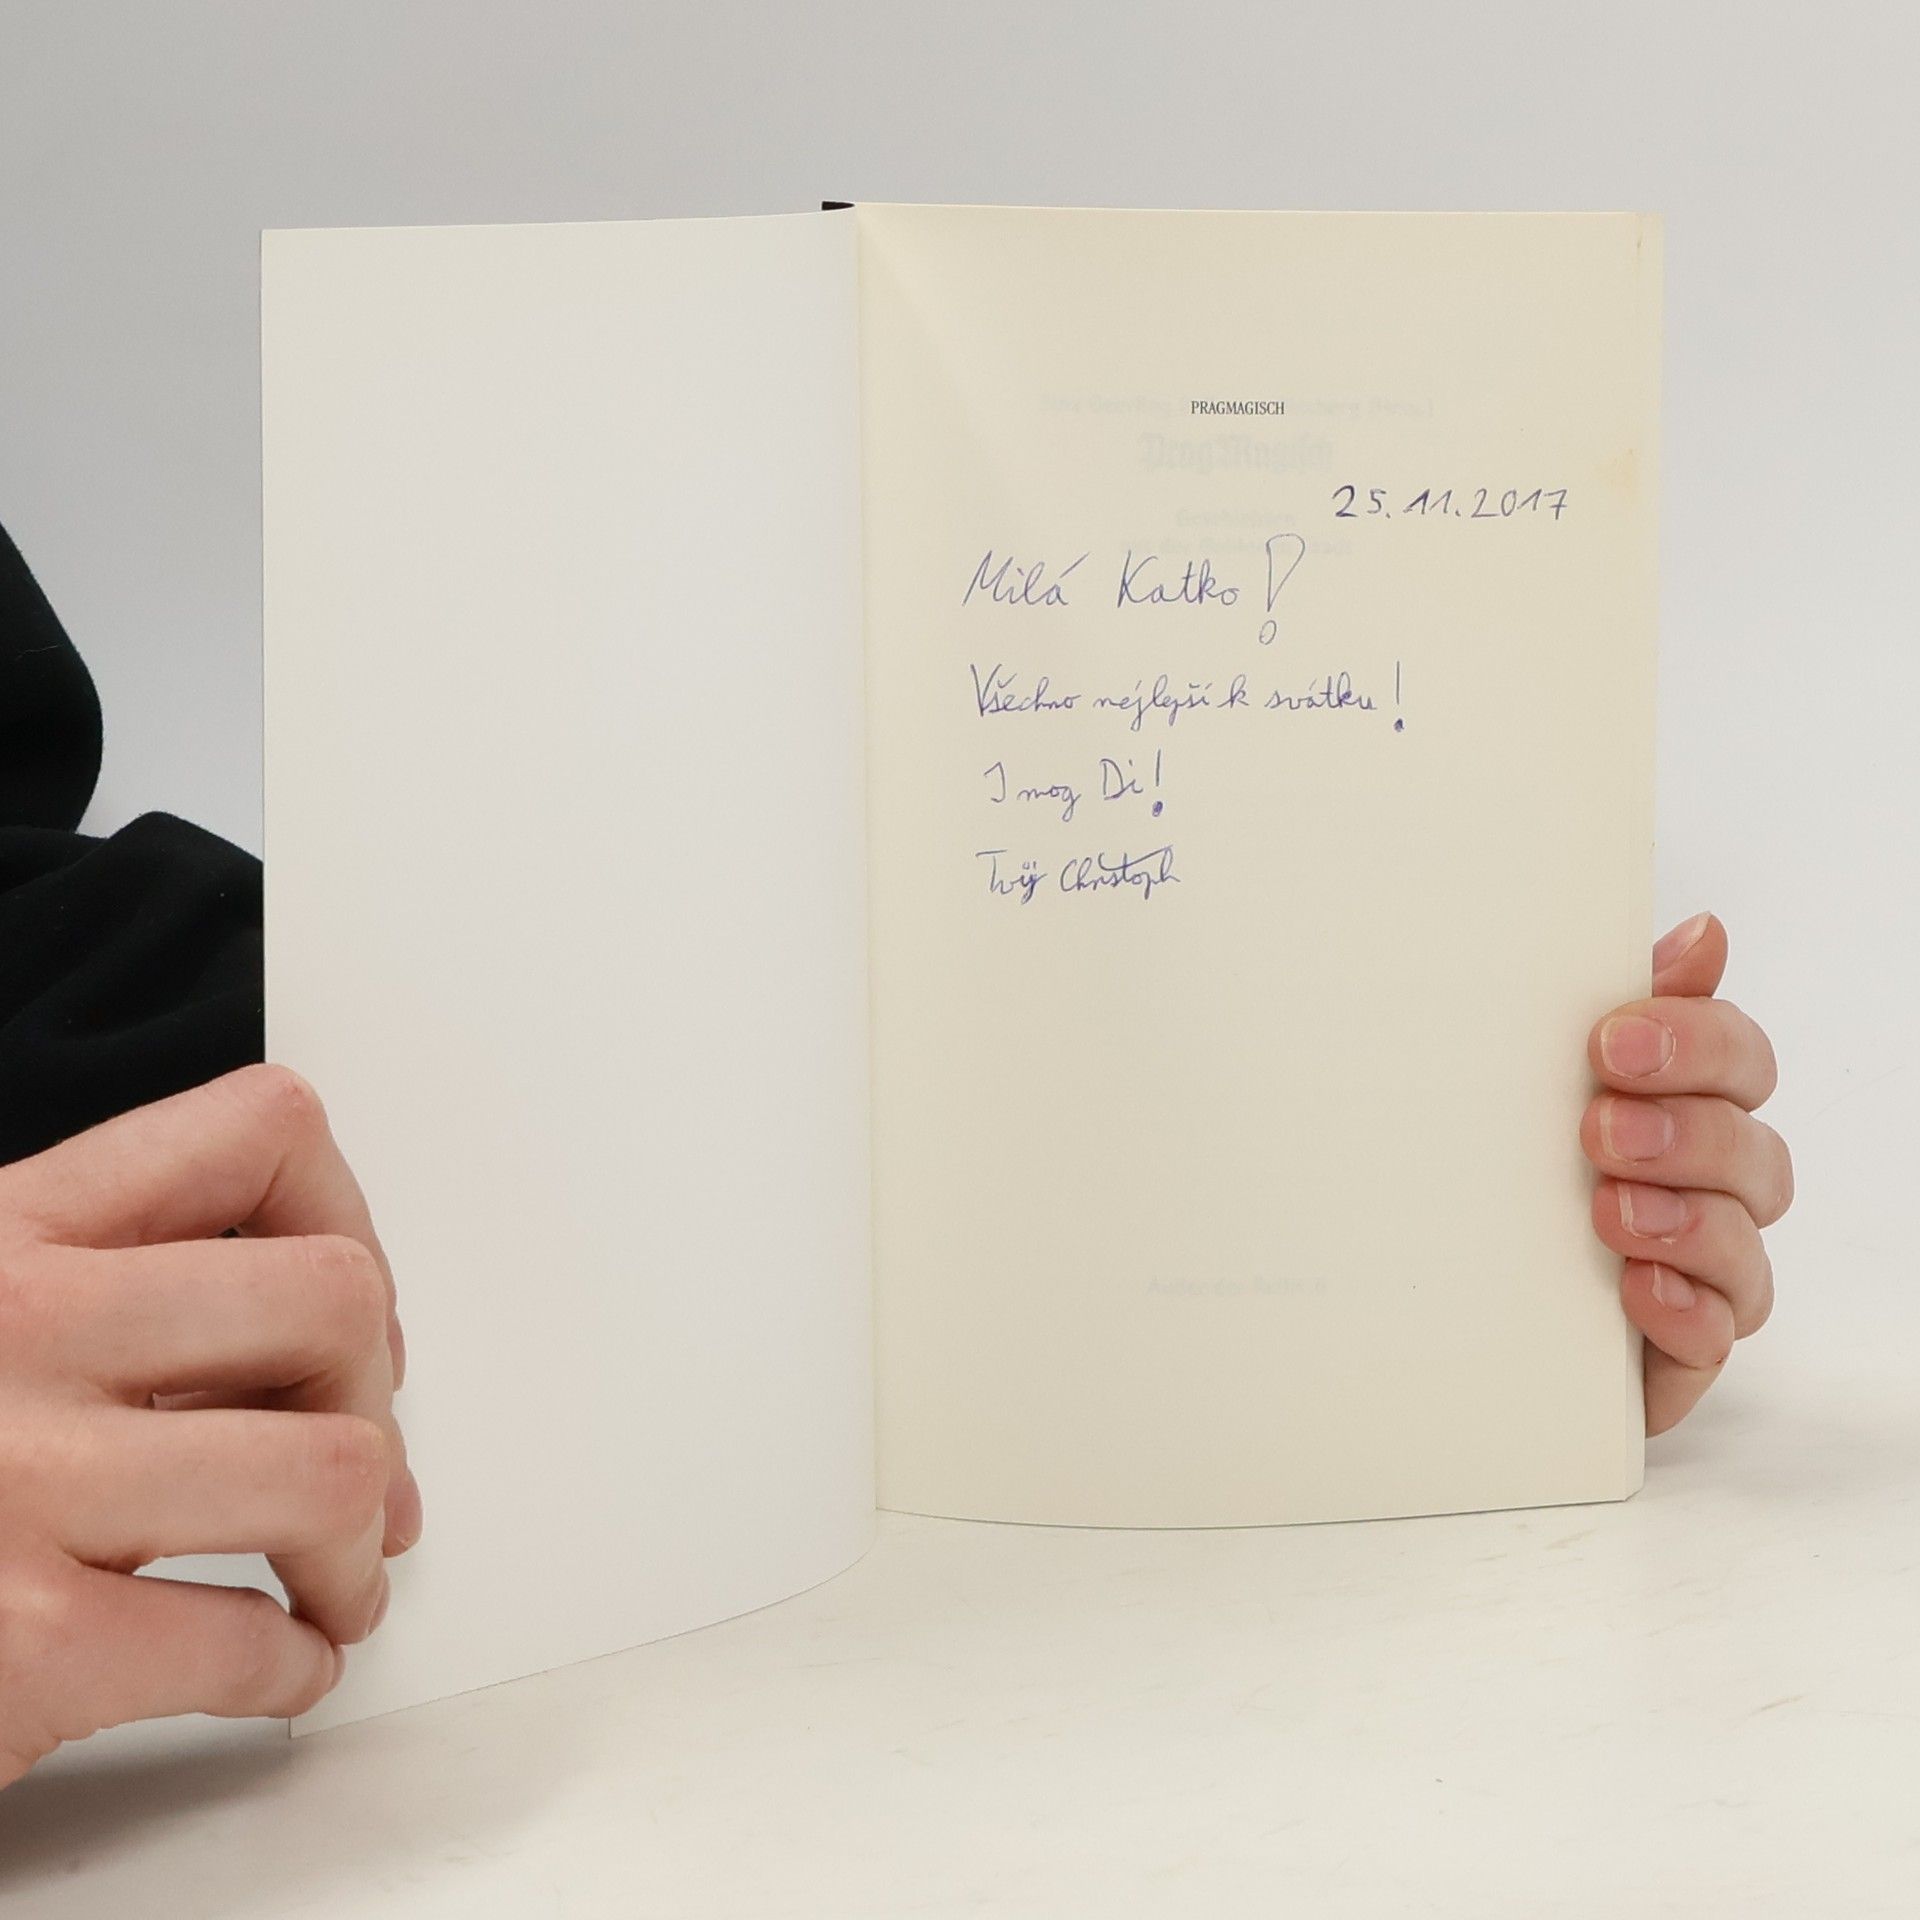 PRAGMAGISCH
25.11.2017
Milá Katko!
Všechno nejlepší k svátku!
I mog Di!
Tvÿ Christoph